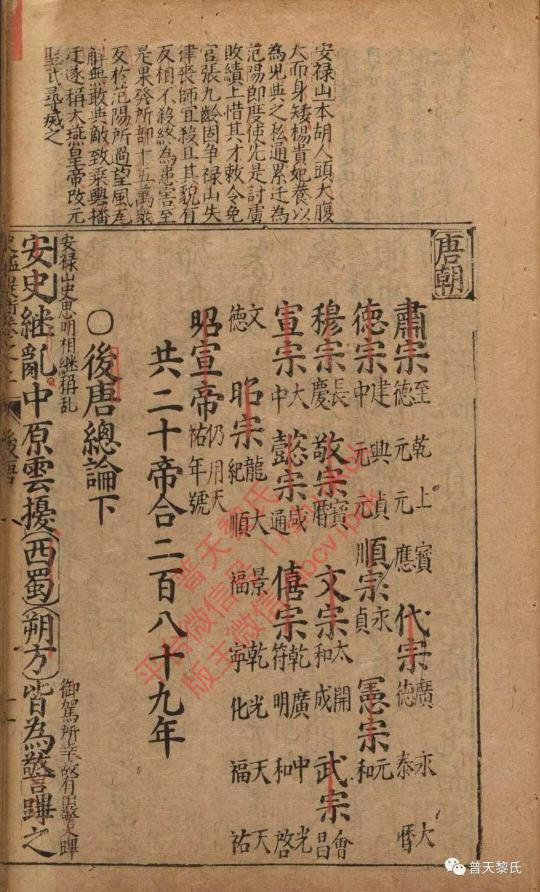 安禄山本胡人頭大腹
大而身矮楊貴妃養以
為兒與之私通累迁為
范陽節度使先是討虜
敗績上惜其才敕令免
官張九齡固争禄山失
律喪師冝殺且其貌有
反相不移終為患害至
是果發所部十五萬衆
反於范陽所過望風瓦
解無敢與敵致乘輿播
迁遂称大燕皇帝改元
聖武尋滅之
唐朝
肅宗至德乾元上元寶應代宗廣德永泰大曆
德宗建中興元貞元順宗永貞憲宗元和
穆宗長慶敬宗寶曆文宗太和開成武宗會昌
宣宗大中懿宗咸通僖宗乾符廣明中和光啓
文德昭宗龍紀大順景福乾寧光化天福天祐
昭宣帝仍用天祐年號
共二十帝合二百八十九年
〇後唐總論下
安禄山史思明相継稱乱
安史継亂中原雲擾西蜀朔方皆為警蹕之
御駕所幸故有出警入蹕
普天黎氏